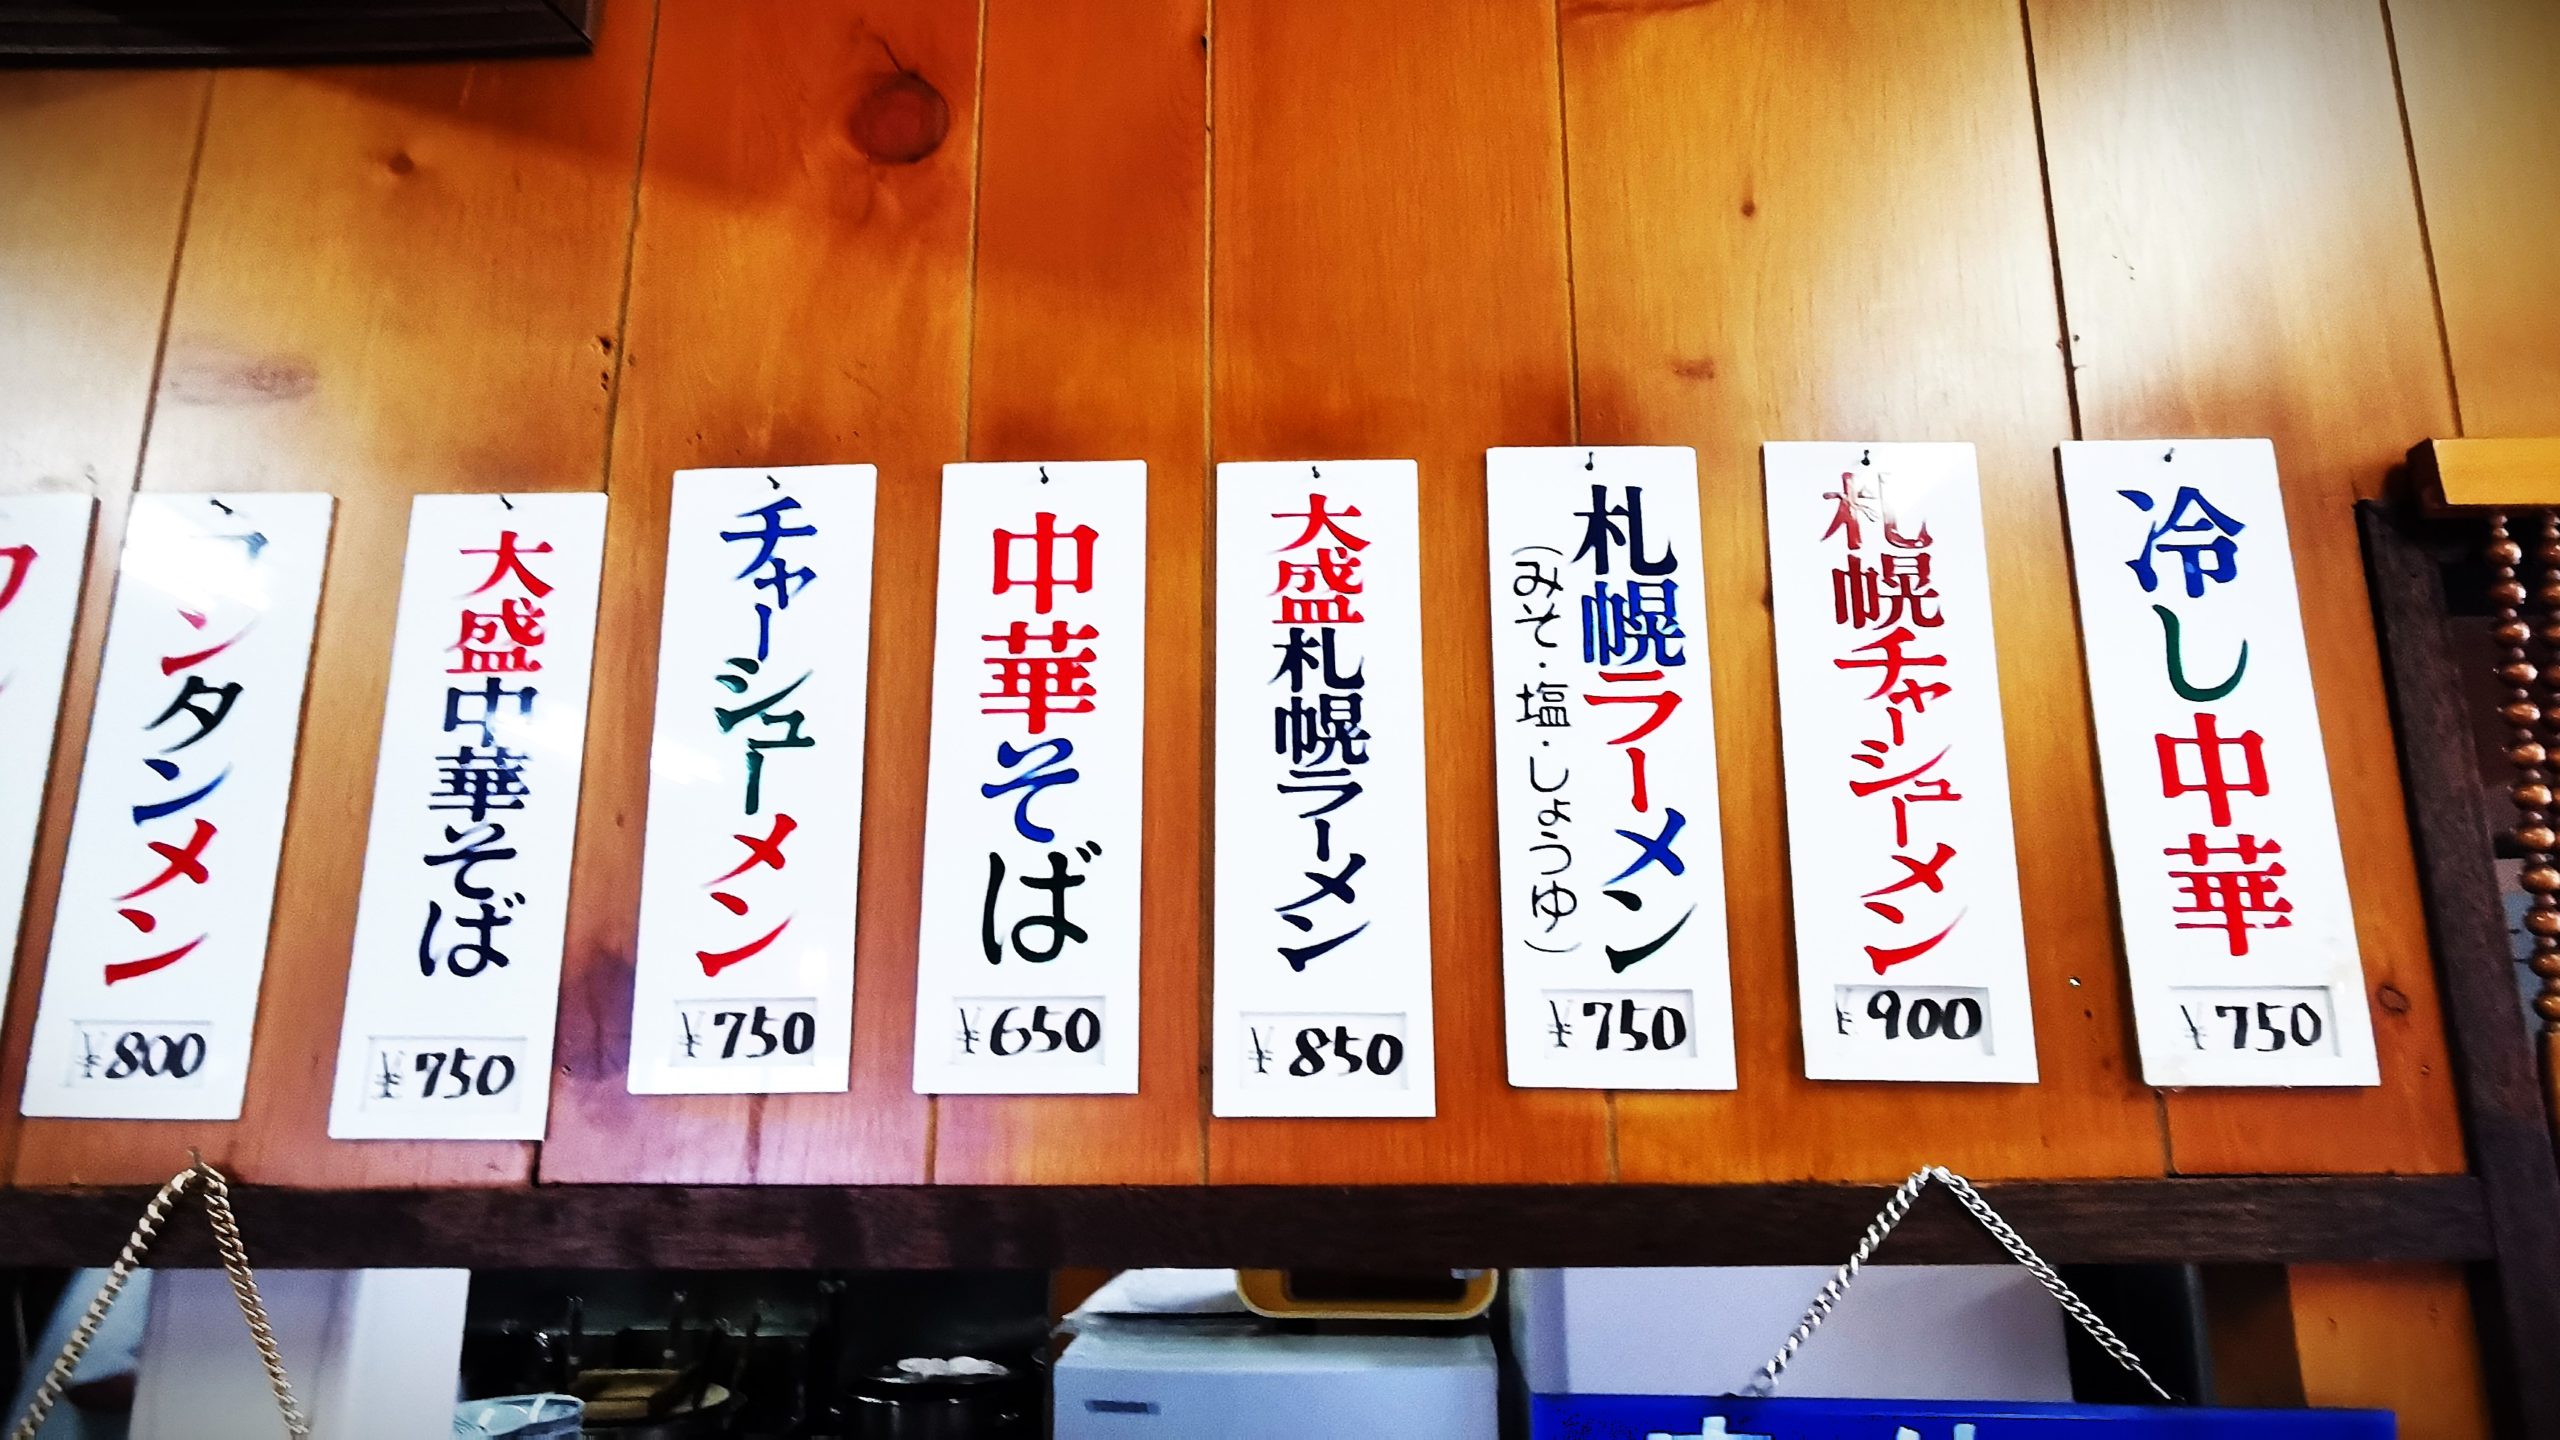 冷し中華
¥750
札幌チャーシューメン
¥900
札幌ラーメン
(みそ・塩・しょうゆ)
¥750
大盛札幌ラーメン
¥850
中華そば
¥650
チャーシューメン
¥750
大盛中華そば
¥750
ワンタンメン
¥800